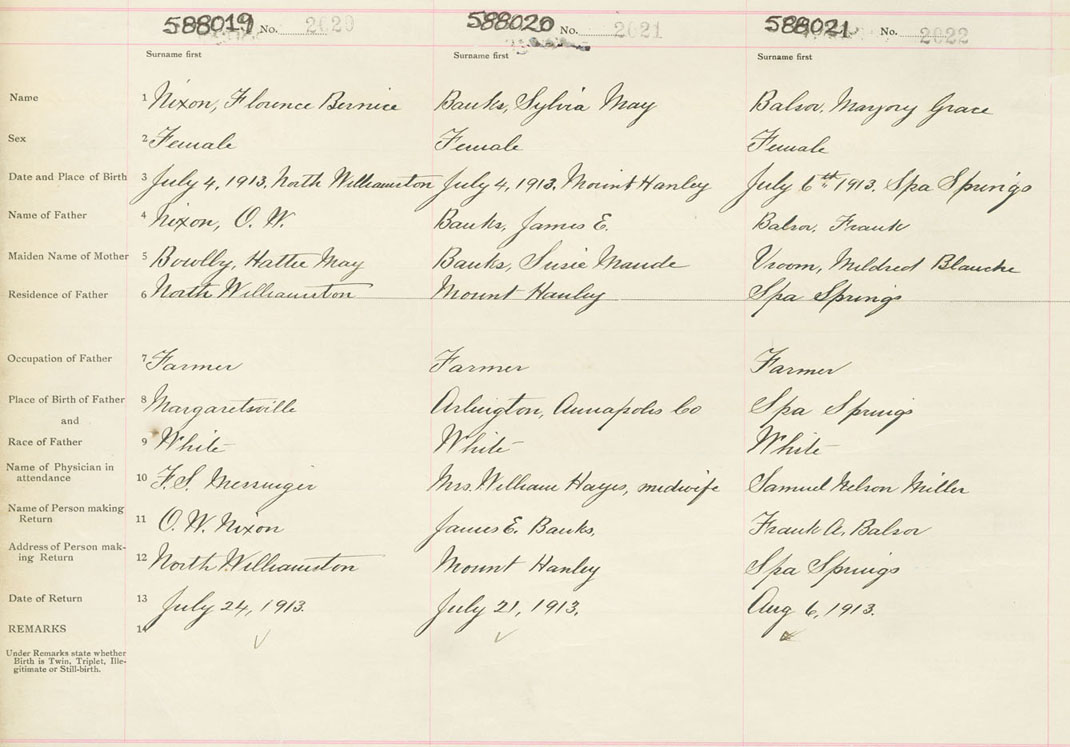 588019 No. 2020 588020 No. 2021 588021 No. 2022
Surname first Surname first Surname first
Name 1 Nixon, Florence Bernice Banks, Sylvia May Balsor, Marjory Grace
Sex 2 Female Female Female
Date and Place of Birth 3 July 4, 1913, North Williamston July 4, 1913, Mount Hanley July 6th 1913, Spa Springs
Name of Father 4 Nixon, O. W. Banks, James E. Balsor, Frank
Maiden Name of Mother 5 Bowlby, Hattie May Banks, Susie Maude Vroom, Mildred Blanche
Residence of Father 6 North Williamston Mount Hanley Spa Springs
Occupation of Father 7 Farmer Farmer Farmer
Place of Birth of Father 8 Margaretsville Arlington, Annapolis Co Spa Springs
and
Race of Father 9 White White White
Name of Physician in
attendance 10 F. S. Messinger Mrs. William Hayes, midwife Samuel Nelson Miller
Name of Person making
Return 11 O. W. Nixon James E. Banks, Frank A, Balsor
Address of Person mak-
ing Return 12 North Williamston Mount Hanley Spa Springs
Date of Return 13 July 24, 1913. July 21, 1913. Aug 6, 1913.
REMARKS 14
Under Remarks state whether
Birth is Twin, Triplet, Ille-
gitimate or Still-birth.